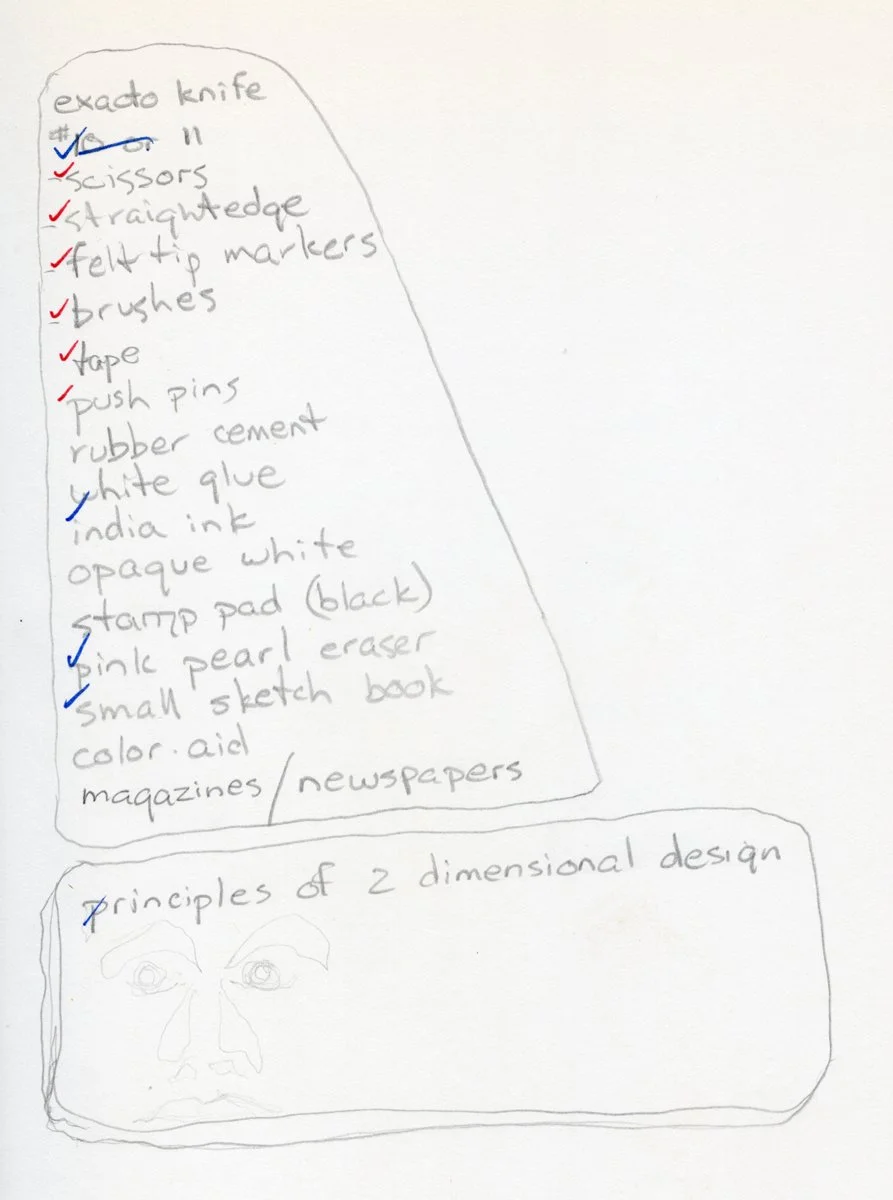 exacto knife
#10 or 11
scissors
straightedge
felt tip markers
brushes
tape
push pins
rubber cement
white glue
india ink
opaque white
stamp pad (black)
pink pearl eraser
small sketch book
color.aid
magazines/newspapers
principles of 2 dimensional design